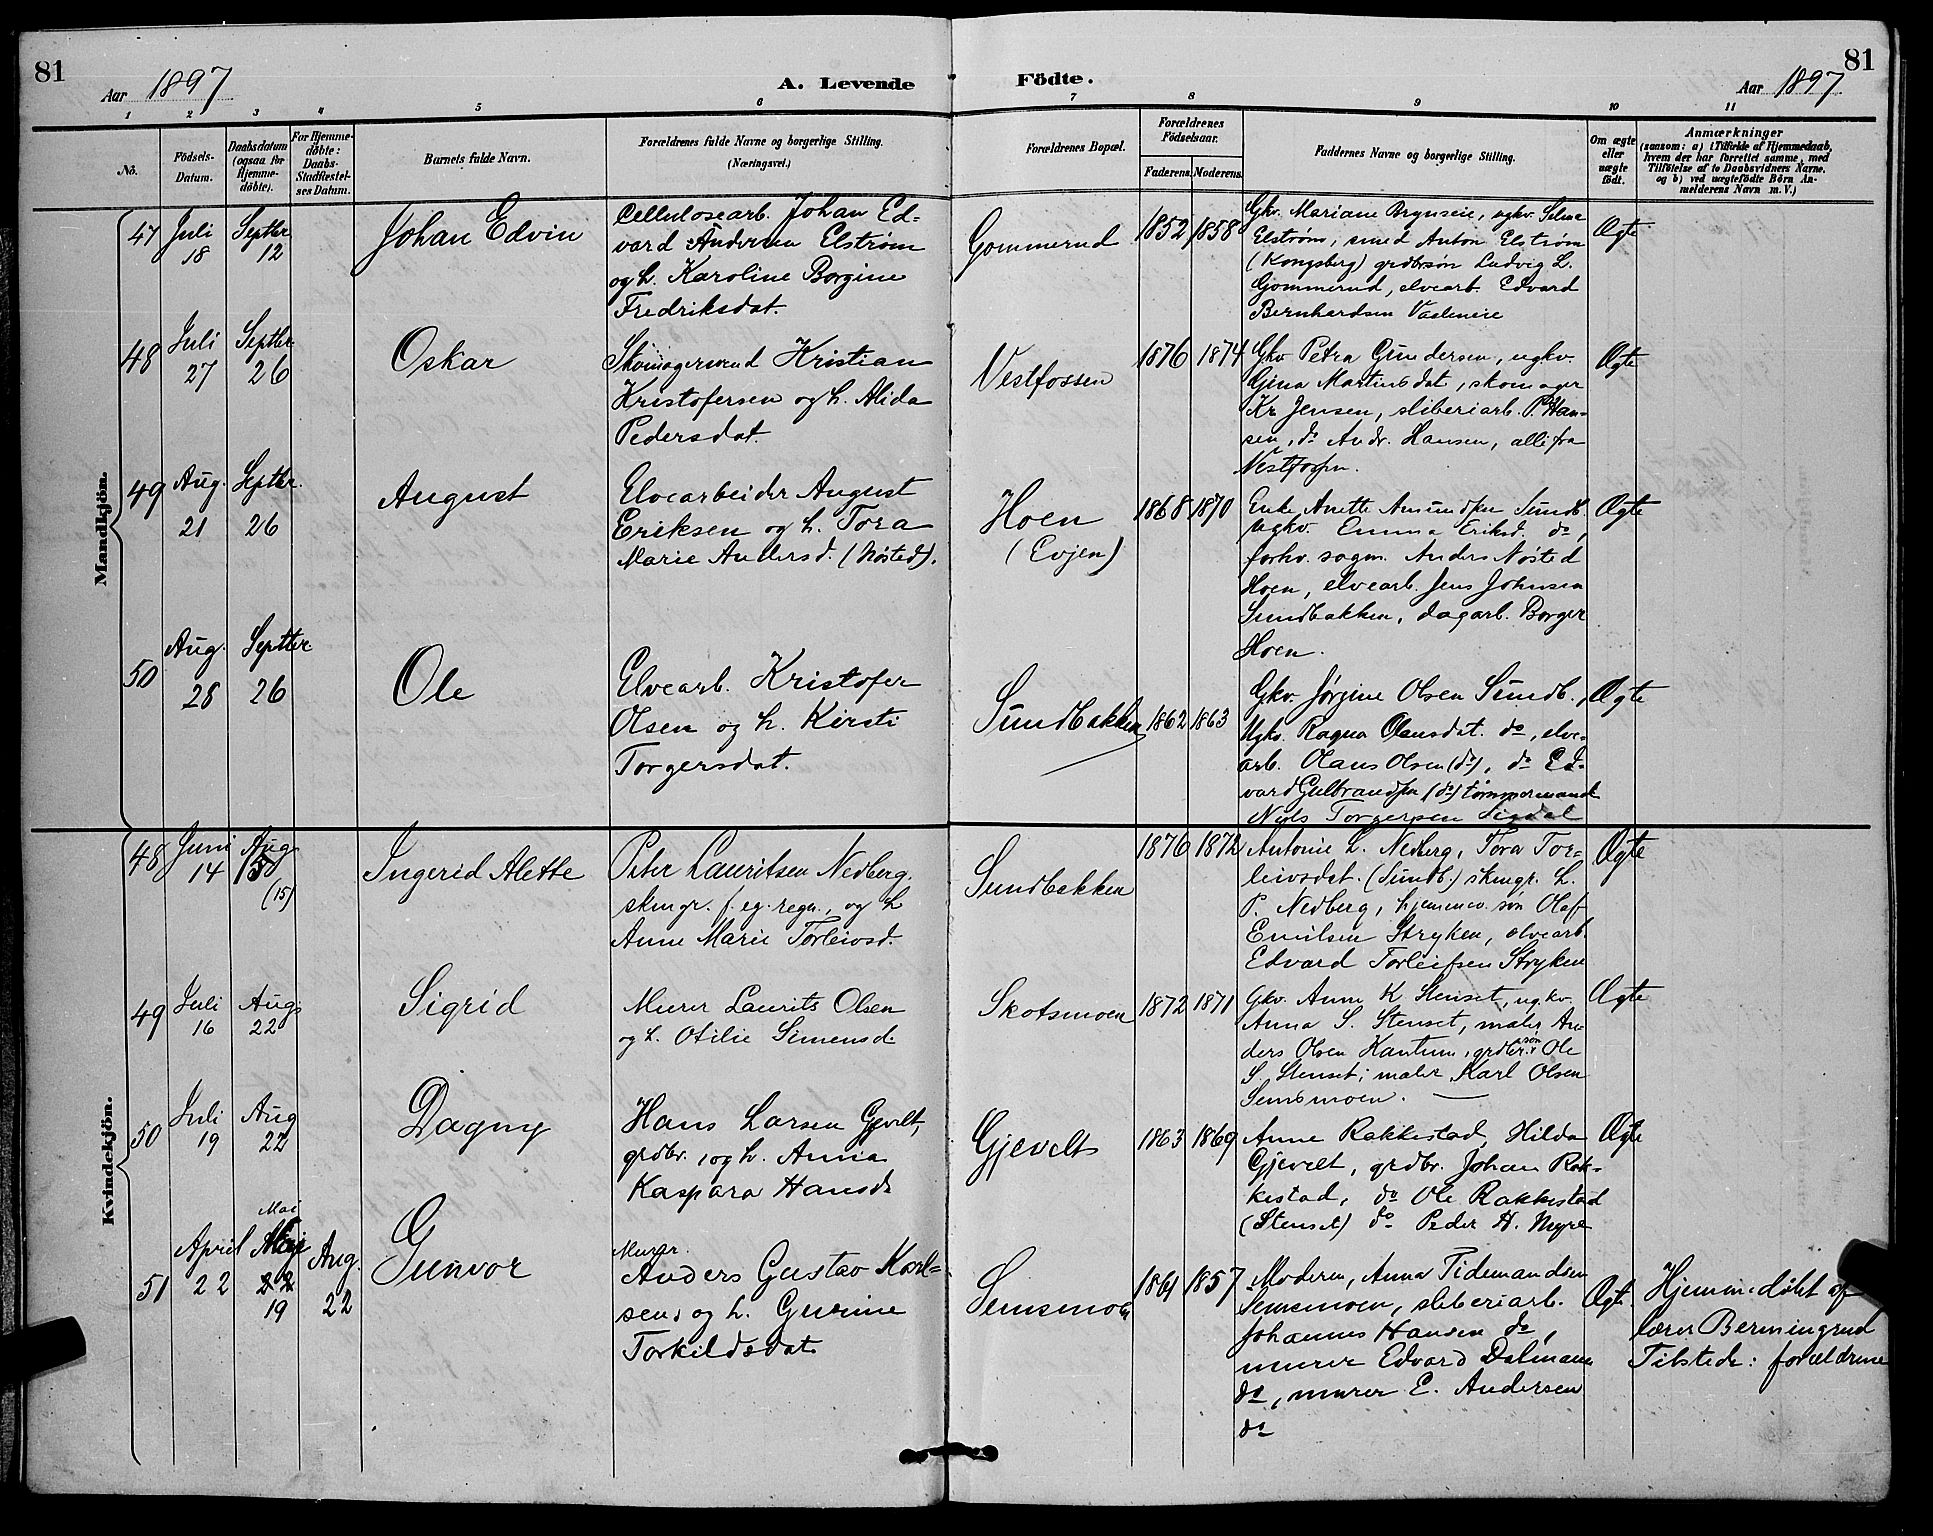 81
Aar 1897
A. Levende
Födte.
Aar 1897
81
1 2 3 4 5 6 7 8 9 10 11
No.
Födsels-
Datum.
Daabsdatum
(ogsaa for
Hjemme-
döbte).
For Hjemme-
döbte:
Daabs-
Stadfæstel-
ses Datum.
Barnets fulde Navn.
Forældrenes fulde Navne og borgerlige Stilling.
(Næringsvei.)
Forældrenes Bopæl.
Forældrenes
Födselsaar.
Faderens. Moderens.
Faddernes Navne og borgerlige Stilling.
Om ægte
eller
uægte
födt.
Anmærkninger
(saasom: a) i Tilfælde af Hjemmedaab,
hvem der har forrettet samme, med
Tilföielse af to Daabsvidners Navne,
og b) ved uægtefödte Börn An-
melderens Navn m. V.)
Mandkjön.
47 Juli 18 Septbr 12
Johan Edvin
Cellulosearb. Johan Ed-
vard Andersen Elström
og h. Karoline Borgine
Fredriksdat.
Gommerud
1852 1858
Gkv. Mariane Brynseie, ugkv. Selma
Elström, smed Anton Elström
(Kongsberg) grdbrsön Ludvig L.
Gommerud, elvearb. Edvard
Bernhardsen
Ægte
48 Juli 27 Septbr 26
Oskar
Skomagersvend Kristian
Kristofersen og h. Alida
Pedersdat.
Vestfossen
1876 1874
Gkv Petra Gundersen, ugkv.
Gina Martinsdat, skomager
Kr Jensen, sliberiarb. P. Han-
sen, do Andr. Hansen, alle fra
Vestfossen.
Ægte
49 Aug. 21 Septbr. 26
August
Elvearbeider August
Eriksen og h. Tora
Marie Andersd. (Nösted).
Hoen
(Evjen)
1868 1870
Enke Anette Amundsen Sundb.
Ugkv. Emma Eriksd. do,
forhv. sagm. Anders Nösted
Hoen, elvearb. Jens Johnsen
Sundbakken, dagarb. Borger
Hoen.
Ægte
50 Aug. 28 Septbr 26
Ole
Elvearb. Kristofer
Olsen og h. Kirsti
Torgersdat.
Sundbakken
1862 1863
Gkv. Jörgine Olsen Sundb.,
Ugkv. Ragna Olausdat. do, elve-
arb. Olaus Olsen (do), do Ed-
vard Gulbrandsen (do) tömmermand
Niels Torgersen Sigdal
Ægte
Kvindekjön.
48 Juni 14 Aug 15
(15)
Ingerid Alette
Peter Lauritsen Nedberg,
skmgr. f. eg. regn., og h
Anne Marie Torleivsd.
Sundbakken
1876 1872
Antonie L. Nedberg, Tora Tor-
leivsdat. (Sundb.) skmgr. L.
P. Nedberg, hjemmev. sön Olaf
Emilsen Stryken, elvearb.
Edvard Torleifsen Stryken
Ægte
49 Juli 16 Aug. 22
Sigrid
Murer Laurits Olsen
og h. Otilie Simensd.
Skotsmoen
1872 1871
Gkv. Anne K Stenset, ugkv.
Anna S. Stenset, maler An-
ders Olsen Hantum, grdbr.sön Ole
S. Stenset, maler Karl Olsen
Semsmoen.
Ægte
50 Juli 19 Aug 22
Dagny
Hans Larsen Gjevelt,
grdbr. og h. Anna
Kaspara Hansd.
Gjevelt
1863 1869
Anne Rakkestad, Hilda
Gjevelt, grdbr. Johan Rak-
kestad, do Ole Rakkestad
(Stenset) do Peder H. Myre
Ægte
51 April 22 Mai 22
Mai
19
Aug. 22
Gunvor
Murer
Anders Gustav Karl-
sen og h. Gurine
Torkildsdat
Semsmoen
1861 1857
Moderen, Anna Tidemandsen
Semsmoen, sliberiarb.
Johannes Hansen do,
murer Edvard Dalmann
do, murer E. Andersen
do
Ægte.
Hjemmedöbt af
lærer Bermingrud
Tilstede: forældrene